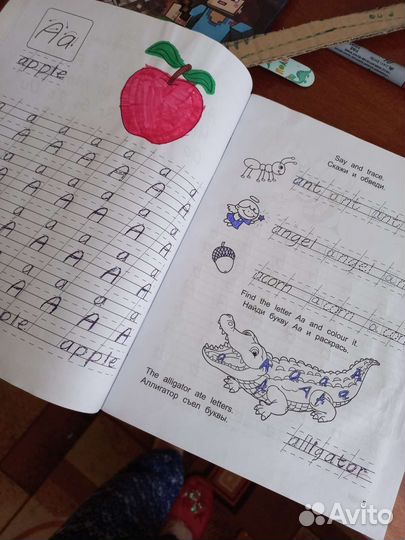 Aa
apple
a a a a a
A A A A A
a a a a a
A A A A A
a a a a a
A A A A A
a a a a a
A A A A A
apple
Say and trace.
Скажи и обведи.
ant ant ant
angel angel
acorn acorn acorn
Find the letter Aa and colour it.
Найди букву Aa и раскрась.
a A a a A A A a
The alligator ate letters.
Аллигатор съел буквы.
alligator
5
Avito